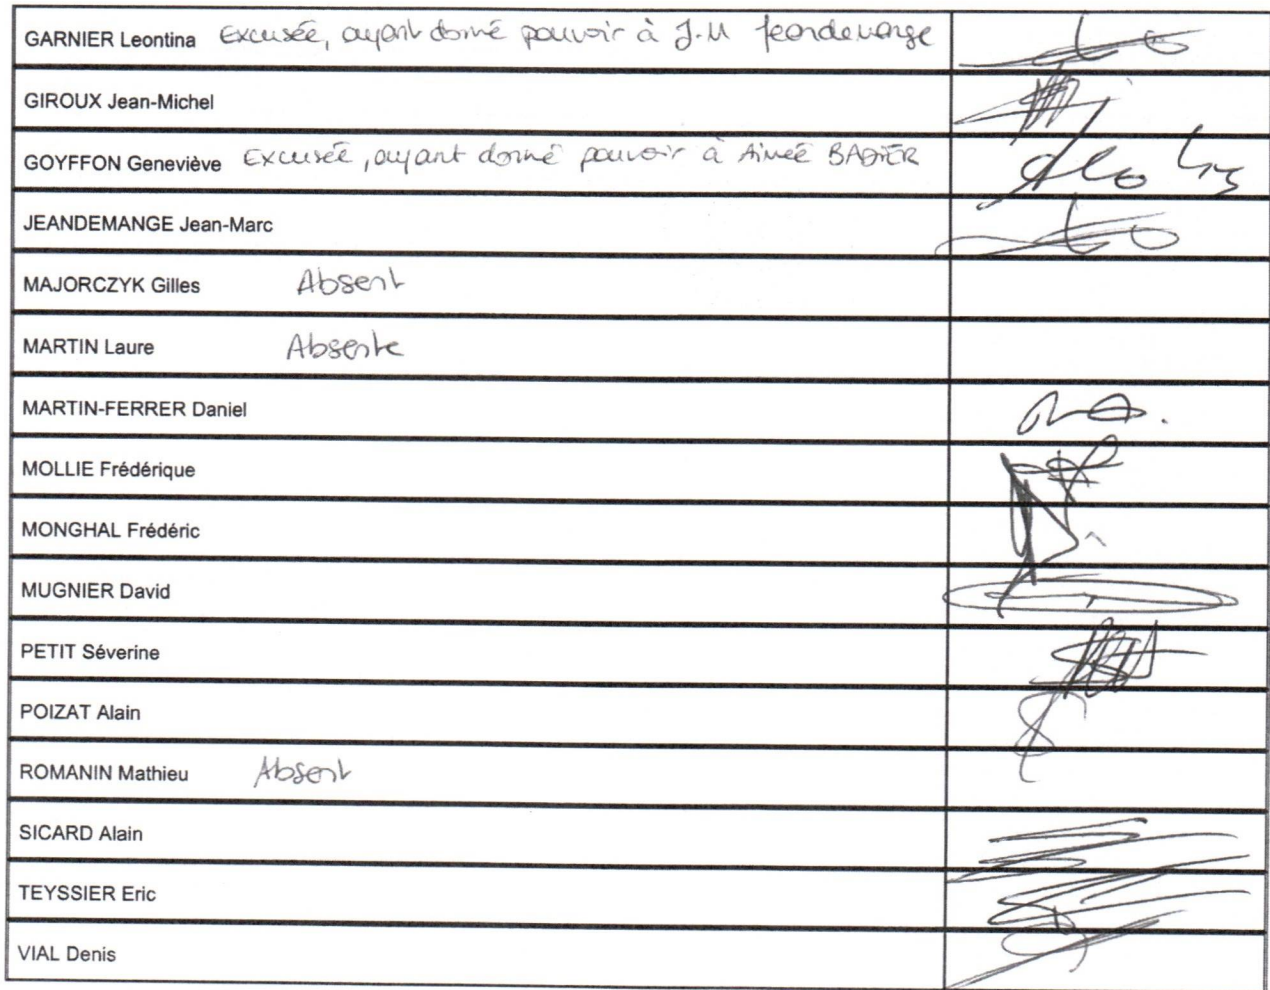 GARNIER Leontina Excusée, ayant donné pouvoir à J.M Jeandemange
GIROUX Jean-Michel
GOYFFON Geneviève Excusée, ayant donné pouvoir à Aimée BADIER
JEANDEMANGE Jean-Marc
MAJORCZYK Gilles Absent
MARTIN Laure Absente
MARTIN-FERRER Daniel
MOLLIE Frédérique
MONGHAL Frédéric
MUGNIER David
PETIT Séverine
POIZAT Alain
ROMANIN Mathieu Absent
SICARD Alain
TEYSSIER Eric
VIAL Denis